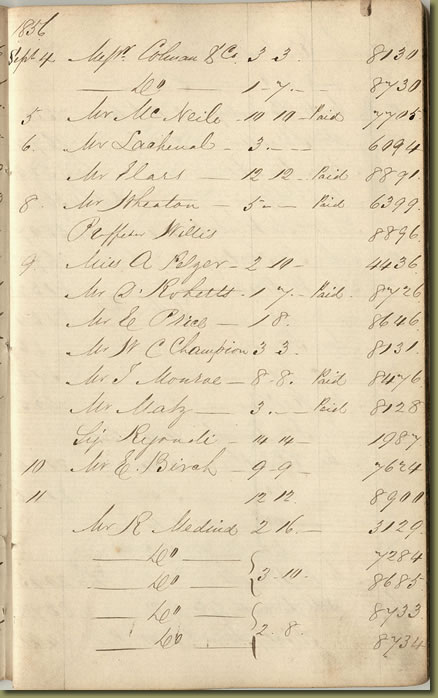 1856
Sept 4 Messrs. Colman & Co. 3 3 . 8130
— Do — 1 - 7 - - 8730
5 Mr McNeile - 10 10 - Paid 7705
6. Mr Lachenal - 3 . - - 6094
Mr - 12 12 - Paid 8891
8 Mr Wheaton - 5 — Paid 6399
Professor Willis 8896
9 Miss A Pelzer - 2 10 - 4436
Mr D. Roberts - 1 7 - Paid . 8726
Mr E Price — 1 8 . 8646
Mr W C Champion 3 3 . 8131
Mr J Monroe — 8 - 8 . Paid 8476
Mr Matz — 3 . — Paid 8128
Sig - 14 14 - 1987
10 Mr E. Birch - 9 - 9 - 7624
11 12 12 . 8900
Mr R Medind 2 16 . — 3129
— Do — 7284
— Do — 3 . 10 . 8685
— Do — 8733
— Do — 2 . 8 . 8734